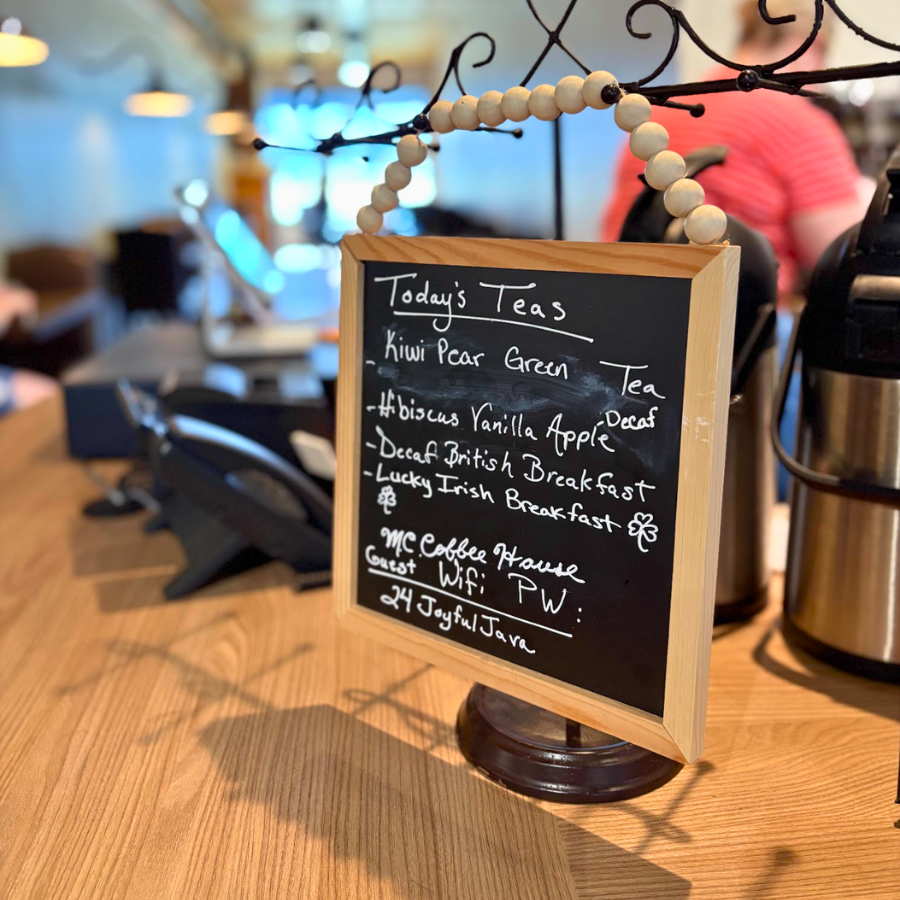 Today's Teas
- Kiwi Pear Green Tea
- Hibiscus Vanilla Apple Decaf
- Decaf British Breakfast
- Lucky Irish Breakfast
MC Coffee House
Guest Wifi PW:
24JoyfulJava